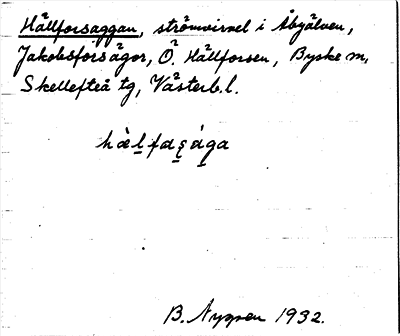 Hällforsaggan, strömvirvel i Åbyälven,
Jakobsforsägor, Ö. Hällforsen, Byske sn,
Skellefteå tg, Västerb. l.
B. Nygren 1932.